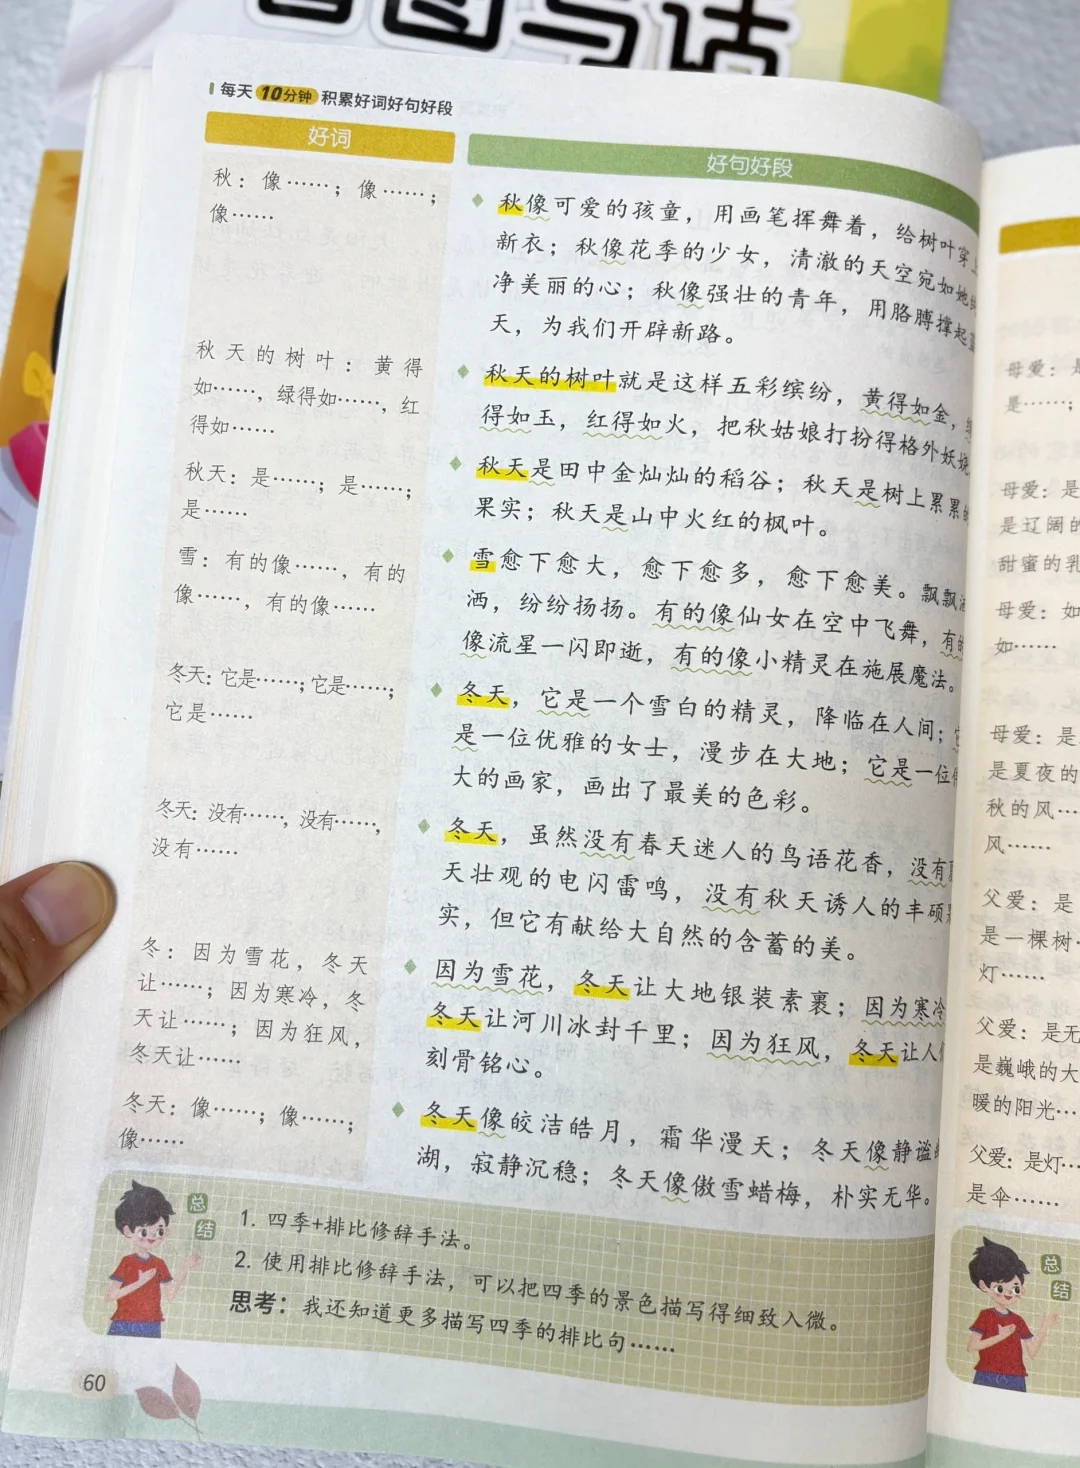 看图写话
每天10分钟 积累好词好句好段
好词
秋：像……；像……；
像……
秋天的树叶：黄得
如……，绿得如……，红
得如……
秋天：是……；是……；
是……
雪：有的像……，有的
像……，有的像……
冬天：它是……；它是……；
它是……
冬天：没有……，没有……，
没有……
冬：因为雪花，冬天
让……；因为寒冷，冬
天让……；因为狂风，
冬天让……
冬天：像……；像……；
像……
好句好段
秋像可爱的孩童，用画笔挥舞着，给树叶穿上
新衣；秋像花季的少女，清澈的天空宛如她
净美丽的心；秋像强壮的青年，用胳膊撑起
天，为我们开辟新路。
秋天的树叶就是这样五彩缤纷，黄得如金，
得如玉，红得如火，把秋姑娘打扮得格外妖娆
秋天是田中金灿灿的稻谷；秋天是树上累累的
果实；秋天是山中火红的枫叶。
雪愈下愈大，愈下愈多，愈下愈美。飘飘
洒，纷纷扬扬。有的像仙女在空中飞舞，有的
像流星一闪即逝，有的像小精灵在施展魔法。
冬天，它是一个雪白的精灵，降临在人间；
是一位优雅的女士，漫步在大地；它是一位
大的画家，画出了最美的色彩。
冬天，虽然没有春天迷人的鸟语花香，没有
天壮观的电闪雷鸣，没有秋天诱人的丰硕
实，但它有献给大自然的含蓄的美。
因为雪花，冬天让大地银装素裹；因为寒冷
冬天让河川冰封千里；因为狂风，冬天让人们
刻骨铭心。
冬天像皎洁皓月，霜华漫天；冬天像静谧
湖，寂静沉稳；冬天像傲雪蜡梅，朴实无华。
总结
1. 四季+排比修辞手法。
2. 使用排比修辞手法，可以把四季的景色描写得细致入微。
思考：我还知道更多描写四季的排比句……
60
母爱：是
是……；
母爱：是
是辽阔的
甜蜜的乳
母爱：如
如……
母爱：是
是夏夜的
秋的风…
风……
父爱：是
是一棵树…
灯……
父爱：是无
是巍峨的大
暖的阳光…
父爱：是灯…
是伞……
总结